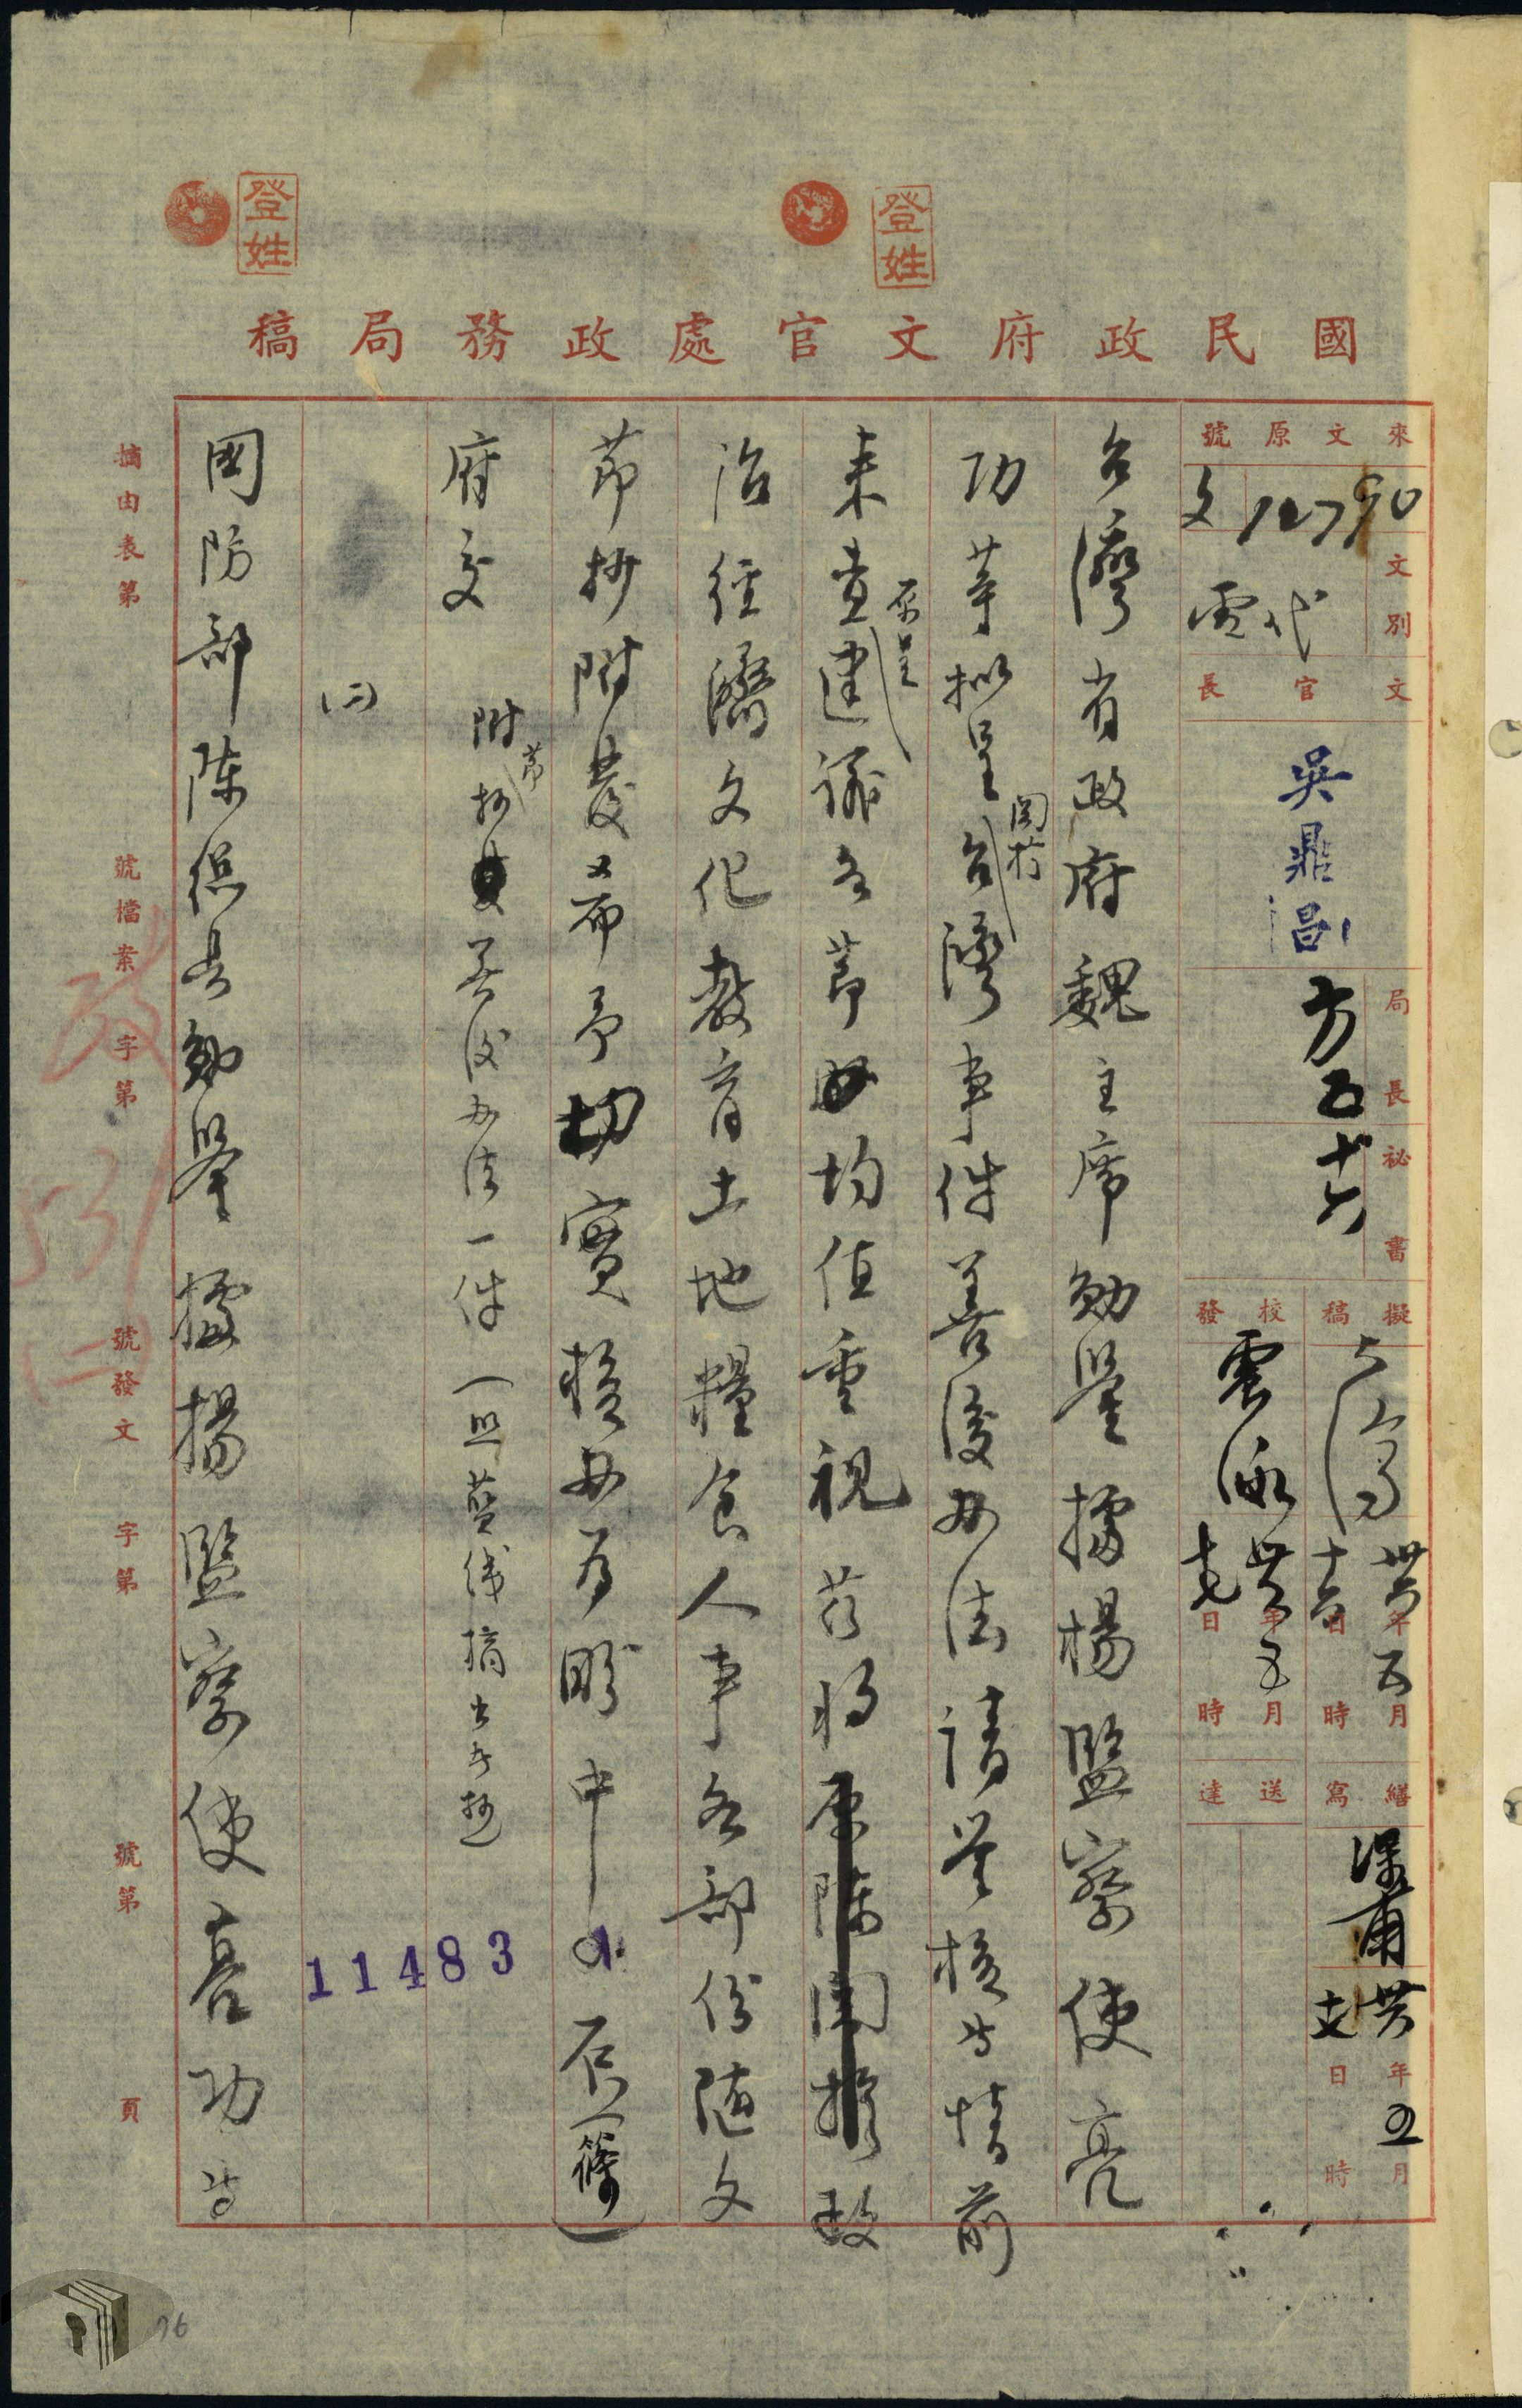 登姓
登姓
國民政府文官處政務局稿
來文原號
文別
代電
文官長
吳鼎昌
局長
秘書
擬稿
卅六年五月十六日時
校發
卅六年五月日時
繕寫
卅六年五月日時
送達
台灣省政府魏主席勛鑒據楊監察使亮
功等擬呈關於台灣事件善後辦法請鑒核等情前
來查原呈建議各節均值重視茲將政
治經濟文化教育土地糧食人事各部份隨文
節抄附發又希予切實核辦為盼中〇辰(篠)
府交
附節抄善後办法一件(照藍線摘出者抄)
(二)
國防部陳總長勛鑒據楊監察使亮功等
11483
摘由表第
號檔案
字第
號發文
字第
號第
頁
政
531
(二)
76